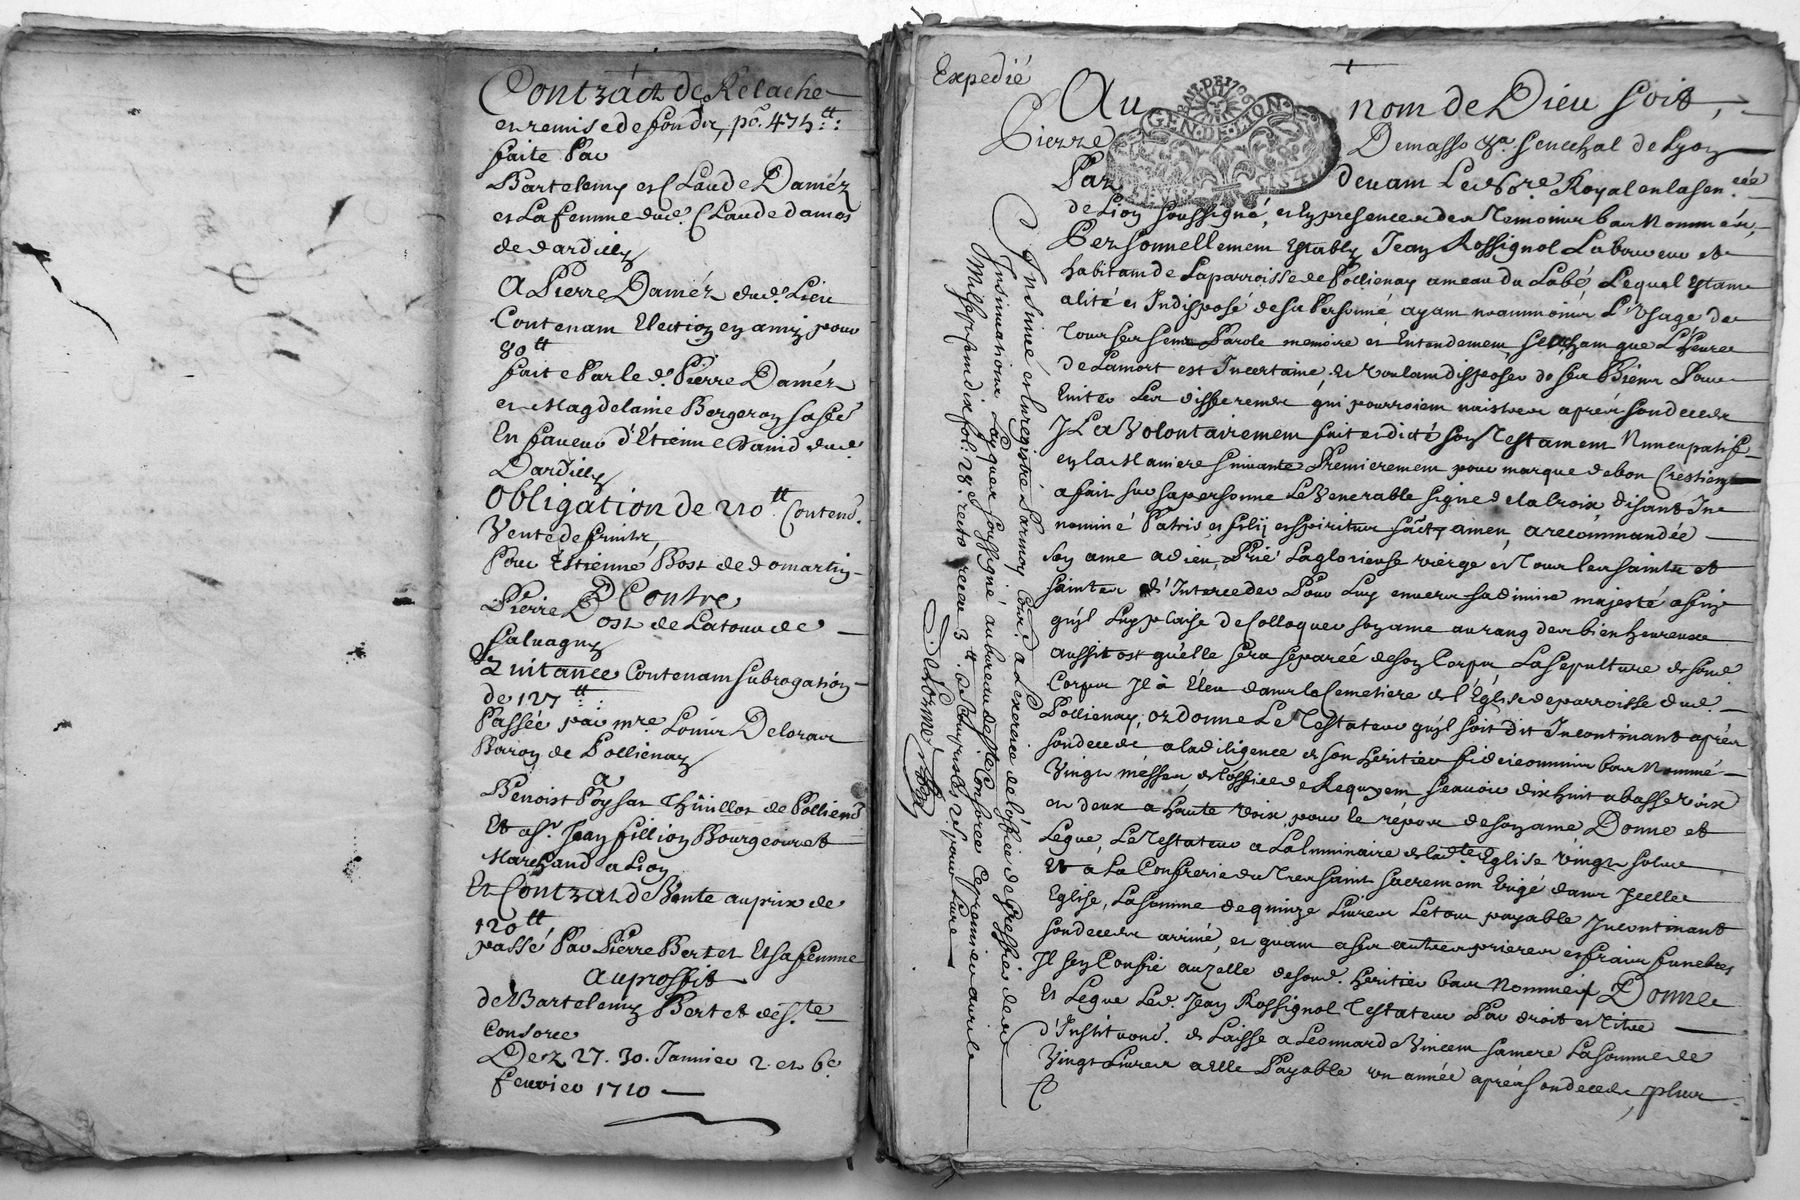 Contract de Relache
et remise de fondz, po. 475tt:
faite Par
Bartelemy et Claude Daméz
et La femme dud. Claude damés
de dardilly
A Pierre Daméz dud. Lieu
Contenant Election en amy pour
80tt
fait e Par le d. Pierre Daméz
et Magdelaine Bergeron sa fe.
En faveur d'Etienne David dud.
Dardilly
Obligation de 210tt Conten.
Vente de fruitz
Pour Estienne Dost de domartin
Contre
Pierre Dost de Latour de
salvagny
Quitance Contenant subrogation
de 127tt:
Passée par mre. Louis Deloras
Baron de Pollienay
a
Benoist Poysat Thuillor de Pollienay
Et a sr. Jean fillion Bourgeois et
Marchand a Lion
Et Contrat de Vente au prix de
120tt
passé Par Pierre Bertet Et sa femme
au proffit
de Bartelemy Bertet de ste
Consorce
Dez 27. 30. Janvier 2. et 6e
fevrier 1710
Expedié
Au nom de Dieu soit,
GEN. DE. LION.
Pierre Demasso &a. senechal de Lyon
Par devant Le No.re Royal en la sen.cée
de Lion soussigné, et En presence des Temoins bas Nommés,
Personnellement Estably Jean Rossignol Laboureur et
habitant de La parroisse de Pollienay ameau du Labé, Lequel Estant
alité et Indisposé de sa Personne ayant neanmoins L'Usage de
tous ses sens Parole memoire et Entendement, sachant que L'heure
de La mort est Incertaine, Et Voulant disposer de ses Biens Pour
Eviter Les differents qui pourroient naistre aprés son decedz
Il a Volontairement fait et dicté son Testament Nuncupatif
en la Maniere suivante Premierement pour marque de bon Crestien
a fait sur sa personne Le Venerable signe de la Croix disant In
nominé Patris et filij et spiritus sacty amen, a recommandée
son ame a dieu, Prié La glorieuse vierge et Tous les saints et
saintes d'Interceder Pour Luy envers sa divine majesté afin
qu'jl Luy plaise de Colloquer son ame au rang des bien heureux
aussitost qu'elle sera separeé de son Corps, La sepulture de sond.
Corps Il à Eleu dans le Cemetiere de l'Eglise de parroisse dud.
Pollienay, ordonne Le Testateur qu'jl soit dit Incontinant aprés
son decedz a la diligence de son heritier fideicommis bas Nommé
Vingt messes de l'office de Requyem scavoir dix huit a basse voix
et deux a haute voix pour le répos de son ame Donne et
Legue, Le Testateur a La luminaire de lad.te Eglise Vingt solus
Et a La Confrerie du Tres saint sacrement Erigé dans Jcelle
Eglise, La somme de quinze Livres Le tout payable Jncontinant
son decedz arrivé, et quant a ses autres prieres et frais funebres
Il s'en Confie au zelle de sond. heritier bas Nommé Donne
Et Legue Led. Jean Rossignol Testateur Par droit et Titre
d'Institution. et Laisse a Leonnarde Vincent sa mere La somme de
Vingt Livres a Elle Payable un année aprés son decedz, plus
Insinué et Enregistré Par moy Com.s a L'exercice de L'office de Greffier des
Insinuations Laiques soussigné au bureau de ste Consorce Ce premier avril
Mil sept cent dix fol: 28. recto receu 3tt.
Delorme